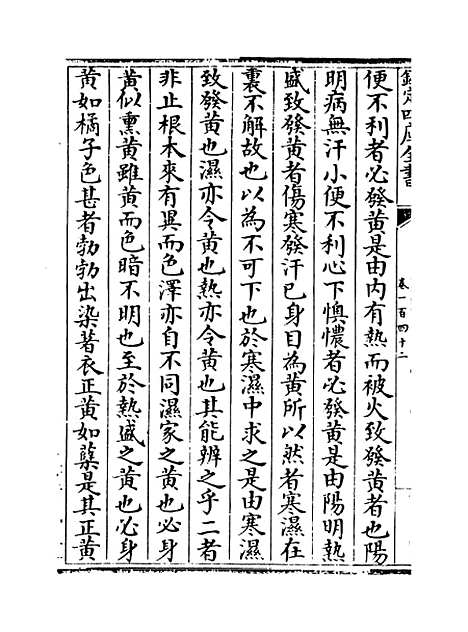 欽定四庫全書
卷一百四十二
便不利者必發黄是由内有熱而被火致發黄者也陽
明病無汗小便不利心下懊憹者必發黄是由陽明熱
盛致發黄者傷寒發汗已身目為黄所以然者寒濕在
裏不解故也以為不可下也於寒濕中求之是由寒濕
致發黄也濕亦令黄也熱亦令黄也其能辨之乎二者
非止根本來有異而色澤亦自不同濕家之黄也必身
黄似熏黄雖黄而色暗不明也至於熱盛之黄也必身
黄如橘子色甚者勃勃出染著衣正黄如蘗是其正黄